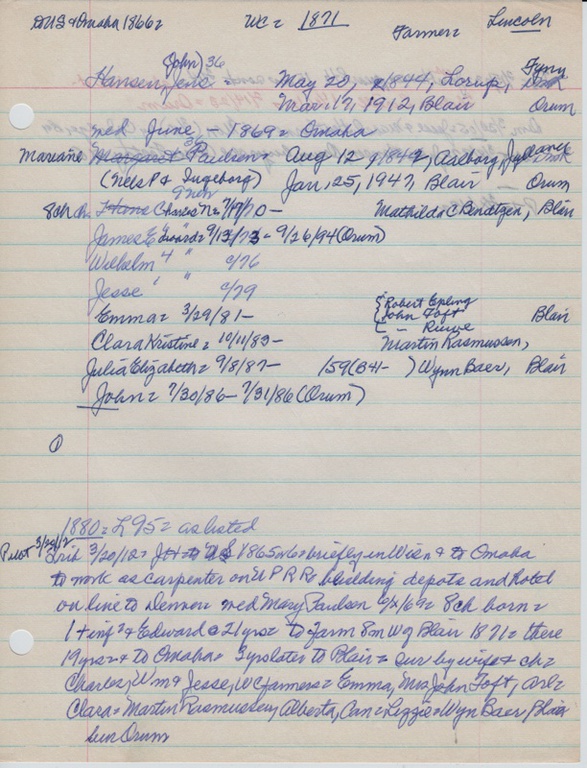 DUS & Omaha 1866= WC= 1871 Farmer= Lincoln
(John) 36
Hansen, Jens May 20, 1844, Torup, Fyny
Mar. 17, 1912, Blair Orum
med June - 1869= Omaha
Mariane Margaret Paulsen= Aug 12 1842, Aalborg, Denmk
(Nels P & Ingeborg) Jan. 25, 1947, Blair Orum
8ch Charles N= - Mathilda C Bendtzen, Blair
James Edward= 9/13/73 - 9/26/94 (Orum)
Wilhelm 4 " c/76
Jesse " c/79
Emma= 3/29/81 - Robert Epling
John Toft Blair
Clara Kristine= 10/11/83- Martin Rasmussen,
Julia Elizabeth= 9/8/87- Wynn Baer, Blair
John= 7/30/86 - 7/31/86 (Orum)
1880= L 95= as listed
Pilot 3/20/12
3/20/12= 1865 briefly in Wisn & to Omaha
to work as carpenter on UPRR= building depots and hotel
on line to Denver= med Mary Paulsen 6/ /69= 8ch born=
1+inf & Edward @ 21yrs= to farm 8m W of Blair 1871= there
19yrs & to Omaha= 3yrs later to Blair= Sur by wife & ch=
Charles, Wm & Jesse, WC farmers= Emma, Mrs John Toft,
Clara= Martin Rasmussen, Alberta, Can= Lizzie= Wyn Baer, Blair
bur Orum